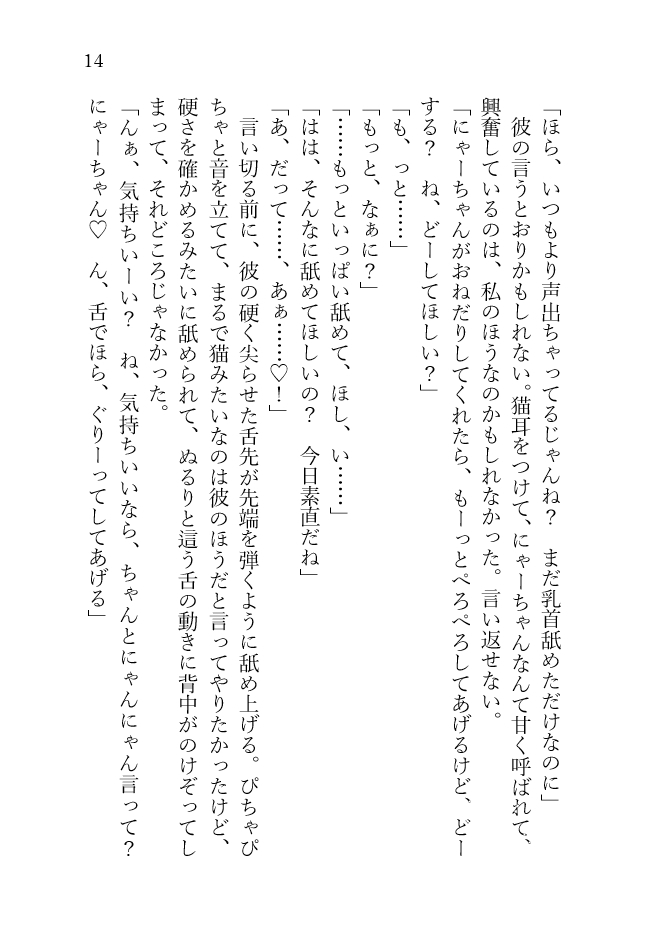 14
「ほら、いつもより声出ちゃってるじゃんね？　まだ乳首舐めただけなのに」
　彼の言うとおりかもしれない。猫耳をつけて、にゃーちゃんなんて甘く呼ばれて、
興奮しているのは、私のほうなのかもしれなかった。言い返せない。
「にゃーちゃんがおねだりしてくれたら、もーっとぺろぺろしてあげるけど、どー
する？　ね、どーしてほしい？」
「も、っと……」
「もっと、なぁに？」
「……もっといっぱい舐めて、ほし、い……」
「はは、そんなに舐めてほしいの？　今日素直だね」
「あ、だって……、あぁ……♡！」
　言い切る前に、彼の硬く尖らせた舌先が先端を弾くように舐め上げる。ぴちゃぴ
ちゃと音を立てて、まるで猫みたいなのは彼のほうだと言ってやりたかったけど、
硬さを確かめるみたいに舐められて、ぬるりと這う舌の動きに背中がのけぞってし
まって、それどころじゃなかった。
「んぁ、気持ちいーい？　ね、気持ちいいなら、ちゃんとにゃんにゃん言って？
にゃーちゃん♡　ん、舌でほら、ぐりーってしてあげる」